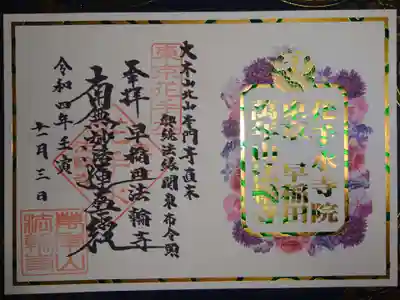 花手水寺院
東京 早稲田
萬年山法輪寺
大本山北山本門寺直末
法縁関東布令頭
東京花手水
奉拝 早稲田法輪寺
南無妙法蓮華経
令和四年壬寅
十一月三日